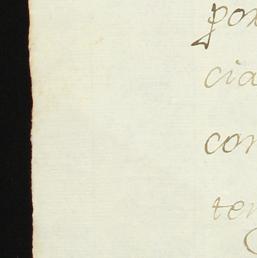 por
cia
con
ten